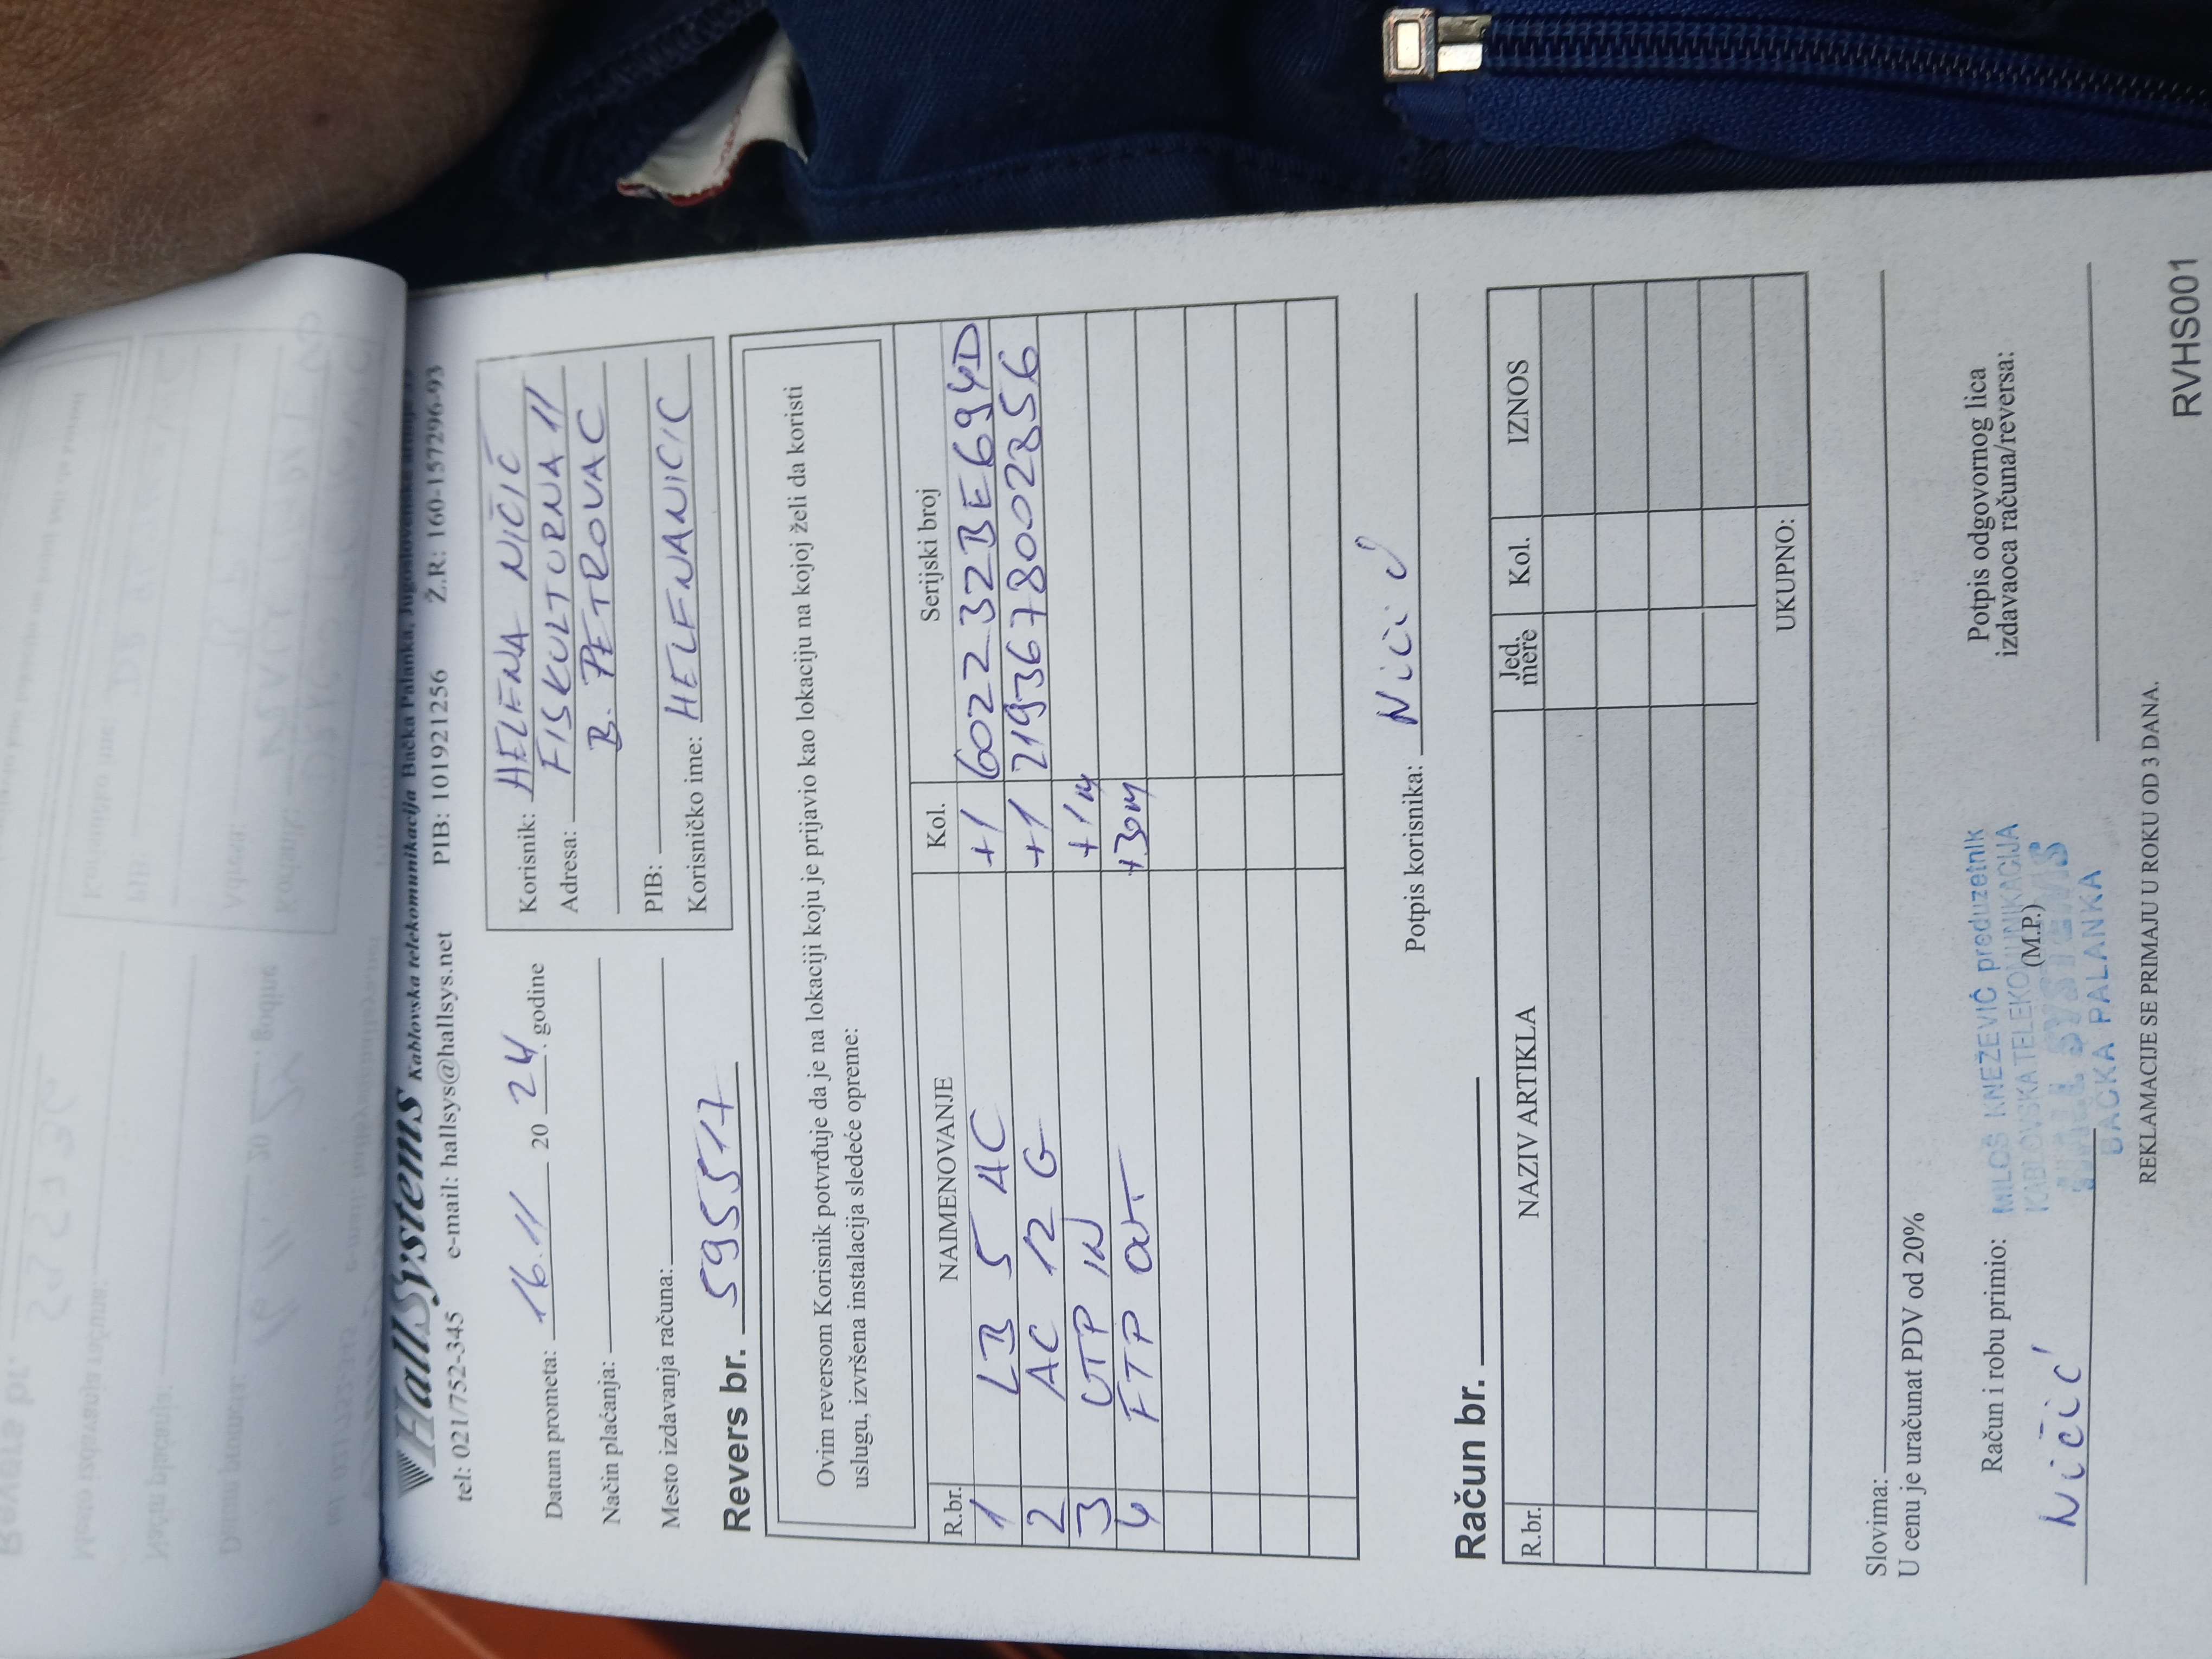 HallSystems Kablovska telekomunikacija Bačka Palanka,
tel: 021/752-345 e-mail: hallsys@hallsys.net PIB: 101921256 Ž.R: 160-157296-93
Datum prometa: 16.11 20 24. godine
Način plaćanja:
Mesto izdavanja računa:
Korisnik: HELENA NIČIĆ
Adresa: FISKULTURNA 11
B. PETROVAC
PIB:
Korisničko ime: HELENANICIC
Revers br. 595517
Ovim reversom Korisnik potvrđuje da je na lokaciji koju je prijavio kao lokaciju na kojoj želi da koristi
uslugu, izvršena instalacija sledeće opreme:
R.br. NAIMENOVANJE Kol. Serijski broj
1 LB 5 AC +1 602232BE694D
2 AC 12 G +1 2193678002856
3 UTP IN +1m
4 FTP OUT +30m
Potpis korisnika: Ničić
Račun br.
R.br. NAZIV ARTIKLA Jed. mere Kol. IZNOS
UKUPNO:
Slovima:
U cenu je uračunat PDV od 20%
Račun i robu primio:
Ničić
MILOŠ KNEŽEVIĆ preduzetnik
KABLOVSKA TELEKOMUNIKACIJA
(M.P.)
HALL SYSTEMS
BAČKA PALANKA
Potpis odgovornog lica
izdavaoca računa/reversa:
REKLAMACIJE SE PRIMAJU U ROKU OD 3 DANA.
RVHS001